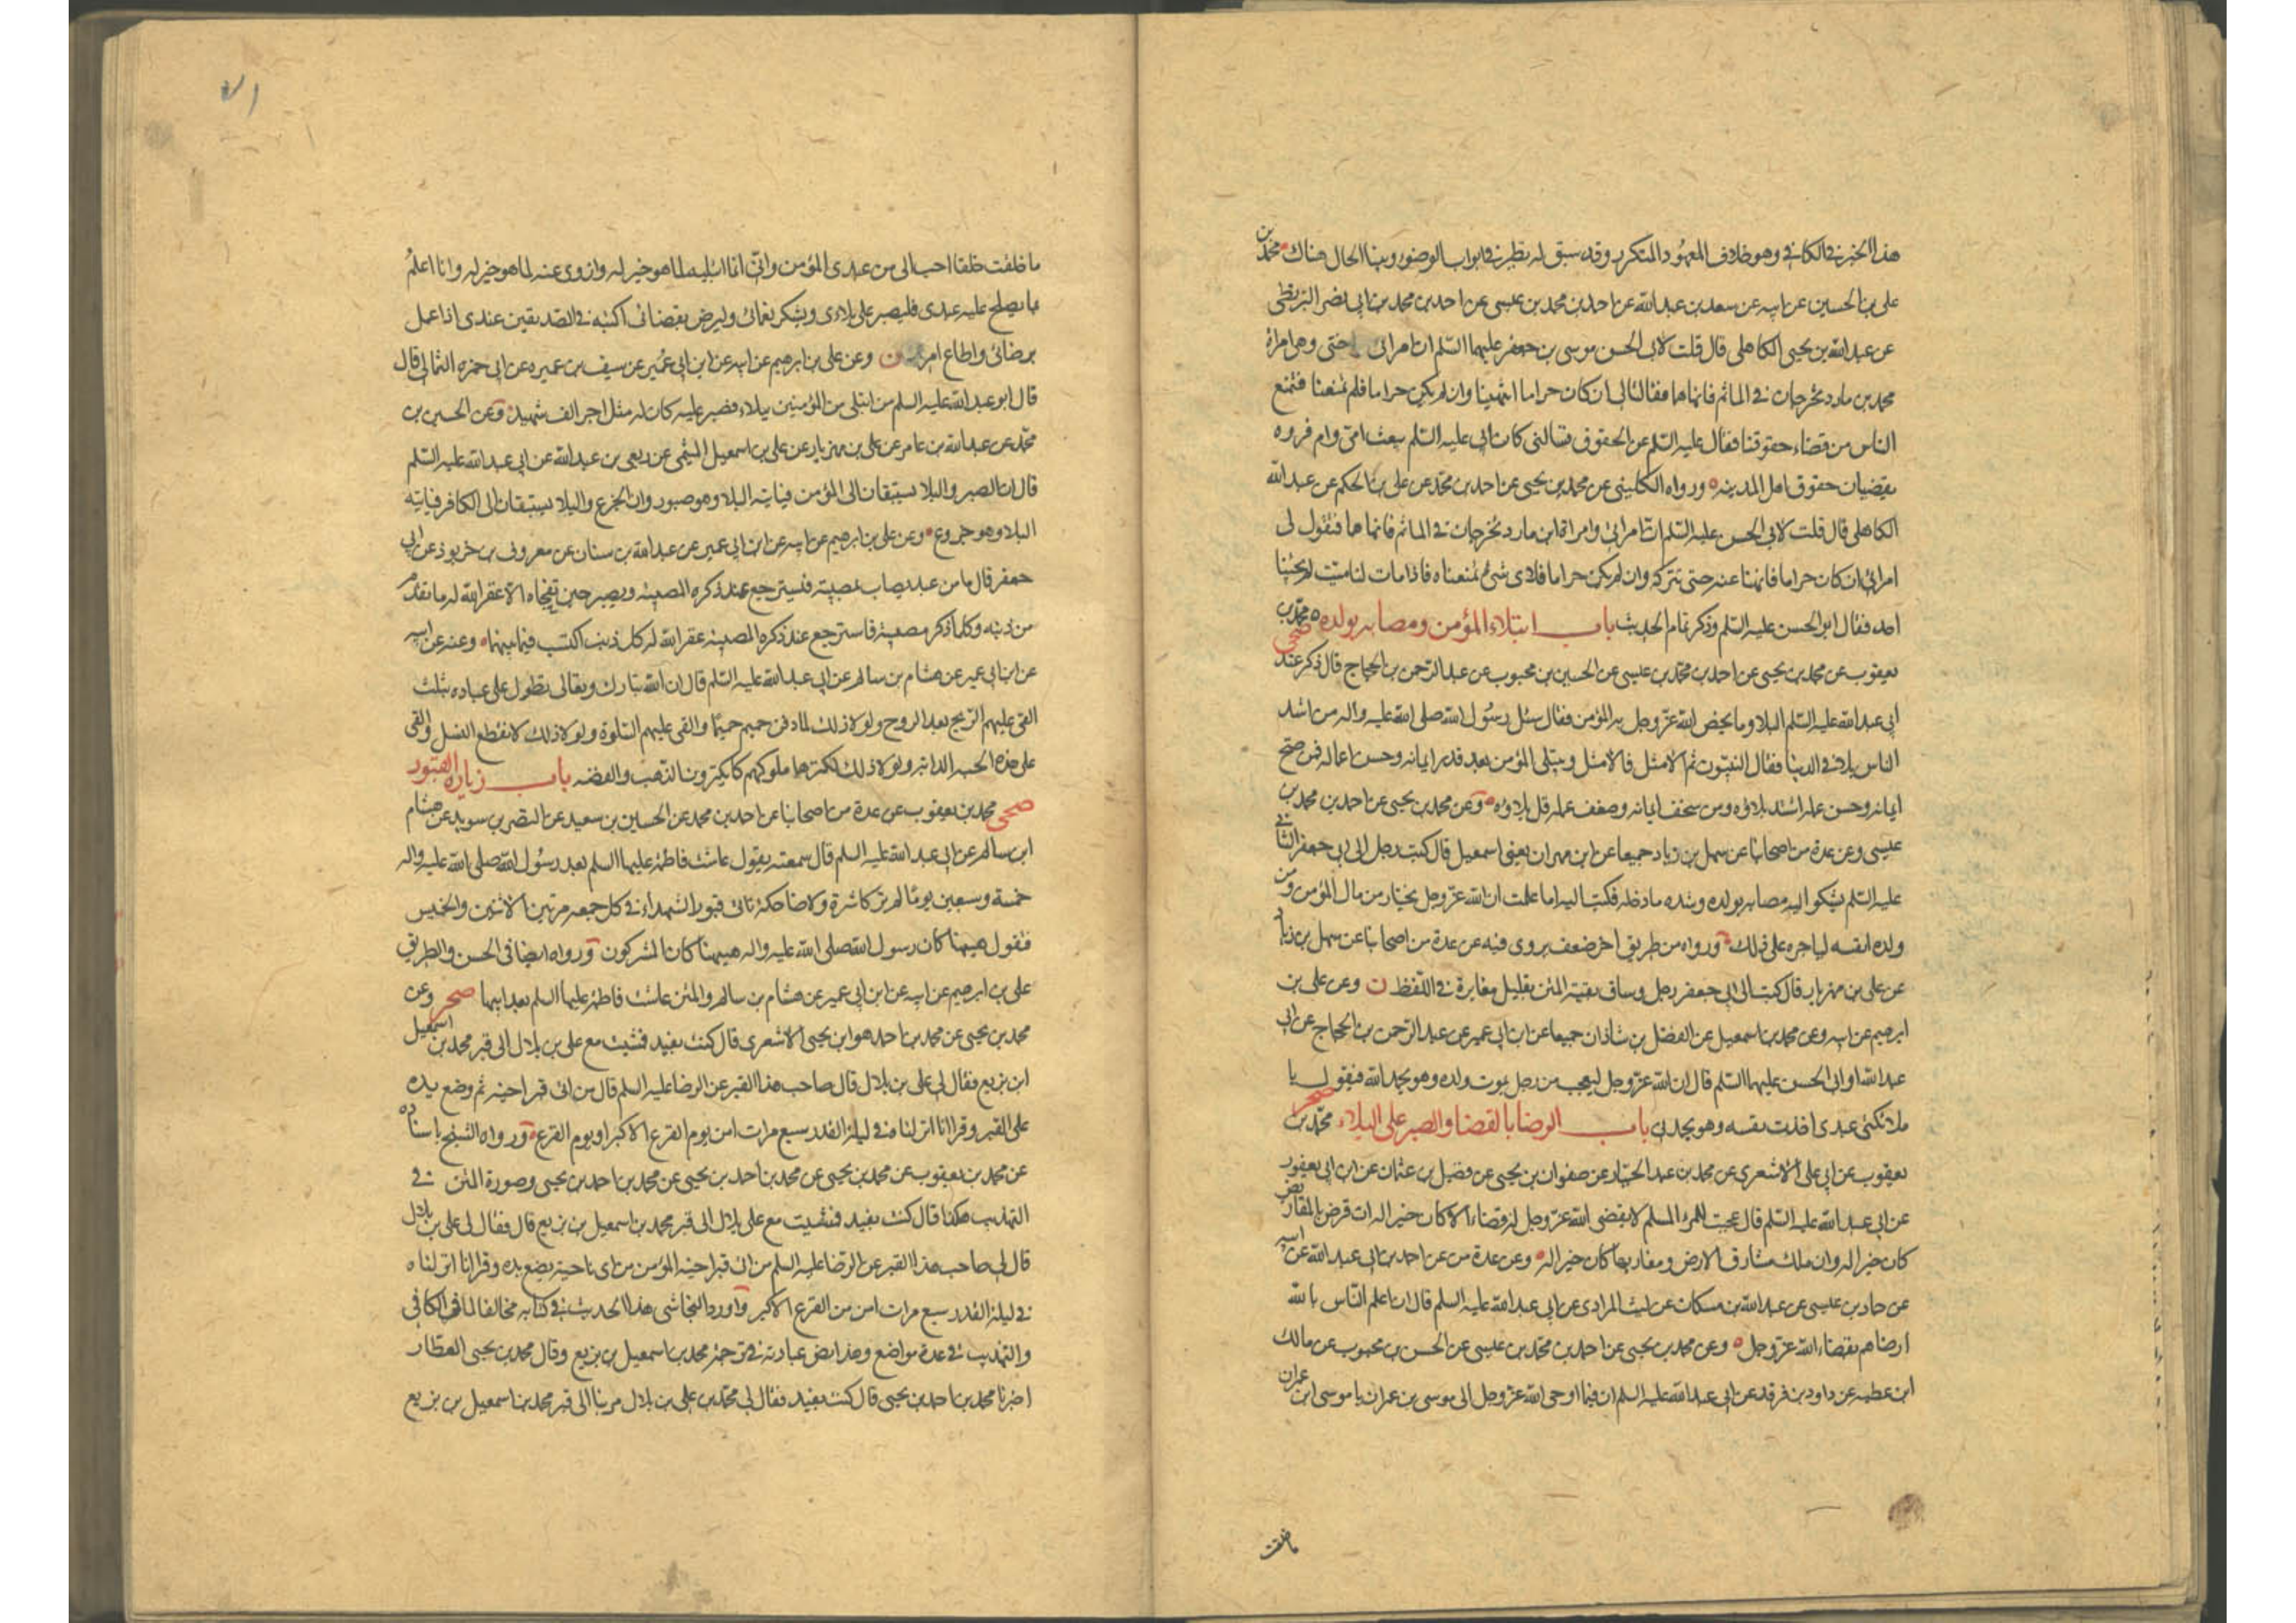 هذا الخبر في الكافي وهو خلاف المعهود المتكرر وقد سبق له نظير في ابواب الوضوء وبينا الحال هناك محمد بن
علي بن الحسين عن ابيه عن سعد بن عبدالله عن احمد بن محمد بن عيسى عن احمد بن محمد بن ابي نصر البزنطي
عن عبدالله بن يحيى الكاهلي قال قلت لابي الحسن موسى بن جعفر عليهما السلم ان امراتي اختي وهي امراة
محمد بن مارد تخرجان في الماتم فانهاهما فقالتا لي ان كان حراما انتهينا وان لم يكن حراما فلم تمنعنا فتمنع
الناس من قضاء حقوقنا فقال عليه السلم عن الحقوق تسالني كان ابي عليه السلم يبعث امي وام فروه
يقضيان حقوق اهل المدينه ورواه الكليني عن محمد بن يحيى عن احمد بن محمد عن علي بن الحكم عن عبدالله
الكاهلي قال قلت لابي الحسن عليه السلم ان امراتي وامراة ابن مارد تخرجان في الماتم فانهاهما فتقول لي
امراتي ان كان حراما فانهنا عنه حتى نتركه وان لم يكن حراما فلاي شيء تمنعناه فاذا مات لنا ميت لم يجئنا
احد فقال ابو الحسن عليه السلم وذكر تمام الحديث باب ابتلاء المؤمن ومصابه بولده صحي محمد بن
يعقوب عن محمد بن يحيى عن احمد بن محمد بن عيسى عن الحسين بن محبوب عن عبدالرحمن بن الحجاج قال ذكر عند
ابي عبدالله عليه السلم البلا وما يخص الله عز وجل به المؤمن فقال سئل رسول الله صلى الله عليه واله من اشد
الناس بلاء في الدنيا فقال النبيون ثم الامثل فالامثل ويبتلى المؤمن بعد قدر ايمانه وحسن اعماله فمن صح
ايمانه وحسن عمله اشتد بلاؤه ومن سخف ايمانه وضعف عمله قل بلاؤه وعن محمد بن يحيى عن احمد بن محمد بن
عيسى وعن عدة من اصحابنا عن سهل بن زياد جميعا عن ابن مهران يعني اسمعيل قال كتب رجل الى ابي جعفر الثاني
عليه السلم يشكو اليه مصابه بولده وشده ما دخله فكتب اليه اما علمت ان الله عز وجل يختار من مال المؤمن ومن
ولده انفسه لياجره على ذلك ورواه من طريق اخر ضعف يروي فيه عن عدة من اصحابنا عن سهل بن زياد
عن علي بن مهزيار قال كتب الى ابي جعفر رجل وساق بقية المتن بقليل مغايرة في اللفظ ن وعن علي بن
ابرهيم عن ابيه وعن محمد بن اسمعيل عن الفضل بن شاذان جميعا عن ابن ابي عمير عن عبدالرحمن بن الحجاج عن ابي
عبدالله او ابي الحسن عليهما السلم قال ان الله عز وجل ليعجب من رجل يموت ولده وهو يحمد الله فيقول يا
ملائكتي عبدي اخذت نفسه وهو يحمدني باب الرضا بالقضا والصبر على البلاء صحر محمد بن
يعقوب عن ابي علي الاشعري عن محمد بن عبد الجبار عن صفوان بن يحيى عن فضيل بن عثمان عن ابن ابي يعفور
عن ابي عبدالله عليه السلم قال عجبت للمرء المسلم لا يقضي الله عز وجل له قضاء الا كان خيرا له ان قرض بالمقاريض
كان خيرا له وان ملك مشارق الارض ومغاربها كان خيرا له وعن عدة من عن احمد بن ابي عبدالله عن ابيه
عن حماد بن عيسى عن عبدالله بن مسكان عن ليث المرادي عن ابي عبدالله عليه السلم قال ان اعلم الناس بالله
ارضاهم بقضاء الله عز وجل وعن محمد بن يحيى عن احمد بن محمد بن عيسى عن الحسن بن محبوب عن مالك
ابن عطيه عن داود بن فرقد عن ابي عبدالله عليه السلم ان فيما اوحى الله عز وجل الى موسى بن عمران يا موسى ابن عمران
ما خلقت
ما خلقت خلقا احب الي من عبدي المؤمن واني انما ابتليه لما هو خير له وازوي عنه لما هو خير له وانا اعلم
بما يصلح عليه عبدي فليصبر على بلاءي ويشكر نعمائي وليرض بقضائي اكتبه في الصديقين عندي اذا عمل
برضائي واطاع امري ن وعن علي بن ابرهيم عن ابيه عن ابن ابي عمير عن سيف بن عميره عن ابي حمزه الثمالي قال
قال ابو عبدالله عليه السلم من ابتلي من المؤمنين ببلاء فصبر عليه كان له مثل اجر الف شهيد وعن الحسين بن
محمد عن عبدالله بن عامر عن علي بن مهزيار عن علي بن اسمعيل الميثمي عن ربعي بن عبدالله عن ابي عبدالله عليه السلم
قال ان الصبر والبلا يستبقان الى المؤمن فياتيه البلا وهو صبور وان الجزع والبلا يستبقان الى الكافر فياتيه
البلا وهو جزوع وعن علي بن ابرهيم عن ابيه عن ابن ابي عمير عن عبدالله بن سنان عن معروف بن خربوذ عن ابي
جعفر قال ما من عبد يصاب بمصيبة فيسترجع عند ذكره المصيبه ويصبر حين تفجاه الا غفر الله له ما تقدم
من ذنبه وكلما ذكر مصيبة فاسترجع عند ذكره المصيبه غفر الله له كل ذنب اكتسب فيما بينهما وعنه عن ابيه
عن ابن ابي عمير عن هشام بن سالم عن ابي عبدالله عليه السلم قال ان الله تبارك وتعالى تطول على عباده بثلث
القى عليهم الريح بعد الروح ولولا ذلك لما دفن حميم حميما والقى عليهم السلوة ولولا ذلك لانقطع النسل والقى
على هذه الحبه الدابه ولولا ذلك لكنزها ملوكهم كما يكنزون الذهب والفضه باب زيارة القبور
صحي محمد بن يعقوب عن عدة من اصحابنا عن احمد بن محمد عن الحسين بن سعيد عن النضر بن سويد عن هشام
ابن سالم عن ابي عبدالله عليه السلم قال سمعته يقول عاشت فاطمة عليها السلم بعد رسول الله صلى الله عليه واله
خمسة وسبعين يوما لم تر كاشرة ولا ضاحكة تاتي قبور الشهداء في كل جمعه مرتين الاثنين والخميس
فتقول هيهنا كان رسول الله صلى الله عليه واله هيهنا كان المشركون ورواه ايضا في الحسن والطريق
علي بن ابرهيم عن ابيه عن ابن ابي عمير عن هشام بن سالم والمتن عاشت فاطمة عليها السلم بعد ابيها صحر وعن
محمد بن يحيى عن محمد بن احمد هو ابن يحيى الاشعري قال كنت بفيد فمشيت مع علي بن بلال الى قبر محمد بن اسمعيل
ابن بزيع فقال لي علي بن بلال قال صاحب هذا القبر عن الرضا عليه السلم قال من اتى قبر اخيه ثم وضع يده
على القبر وقرا انا انزلناه في ليلة القدر سبع مرات امن يوم الفزع الاكبر او يوم الفزع ورواه الشيخ باسناده
عن محمد بن يعقوب عن محمد بن يحيى عن محمد بن احمد بن يحيى عن محمد بن احمد بن يحيى وصورة المتن في
التهذيب هكذا قال كنت بفيد فمشيت مع علي بلال الى قبر محمد بن اسمعيل بن بزيع قال فقال لي علي بن بلال
قال لي صاحب هذا القبر عن الرضا عليه السلم من اتى قبر اخيه المؤمن من اي ناحية يضع يده وقرا انا انزلناه
في ليلة القدر سبع مرات امن من الفزع الاكبر واورد النجاشي هذا الحديث في كتابه مخالفا لما في الكافي
والتهذيب في عدة مواضع وهذا نص عبارته في ترجمة محمد بن اسمعيل بن بزيع وقال محمد بن يحيى العطار
اخبرنا محمد بن احمد بن يحيى قال كنت بفيد فقال لي محمد بن علي بن بلال مر بنا الى قبر محمد بن اسمعيل بن بزيع